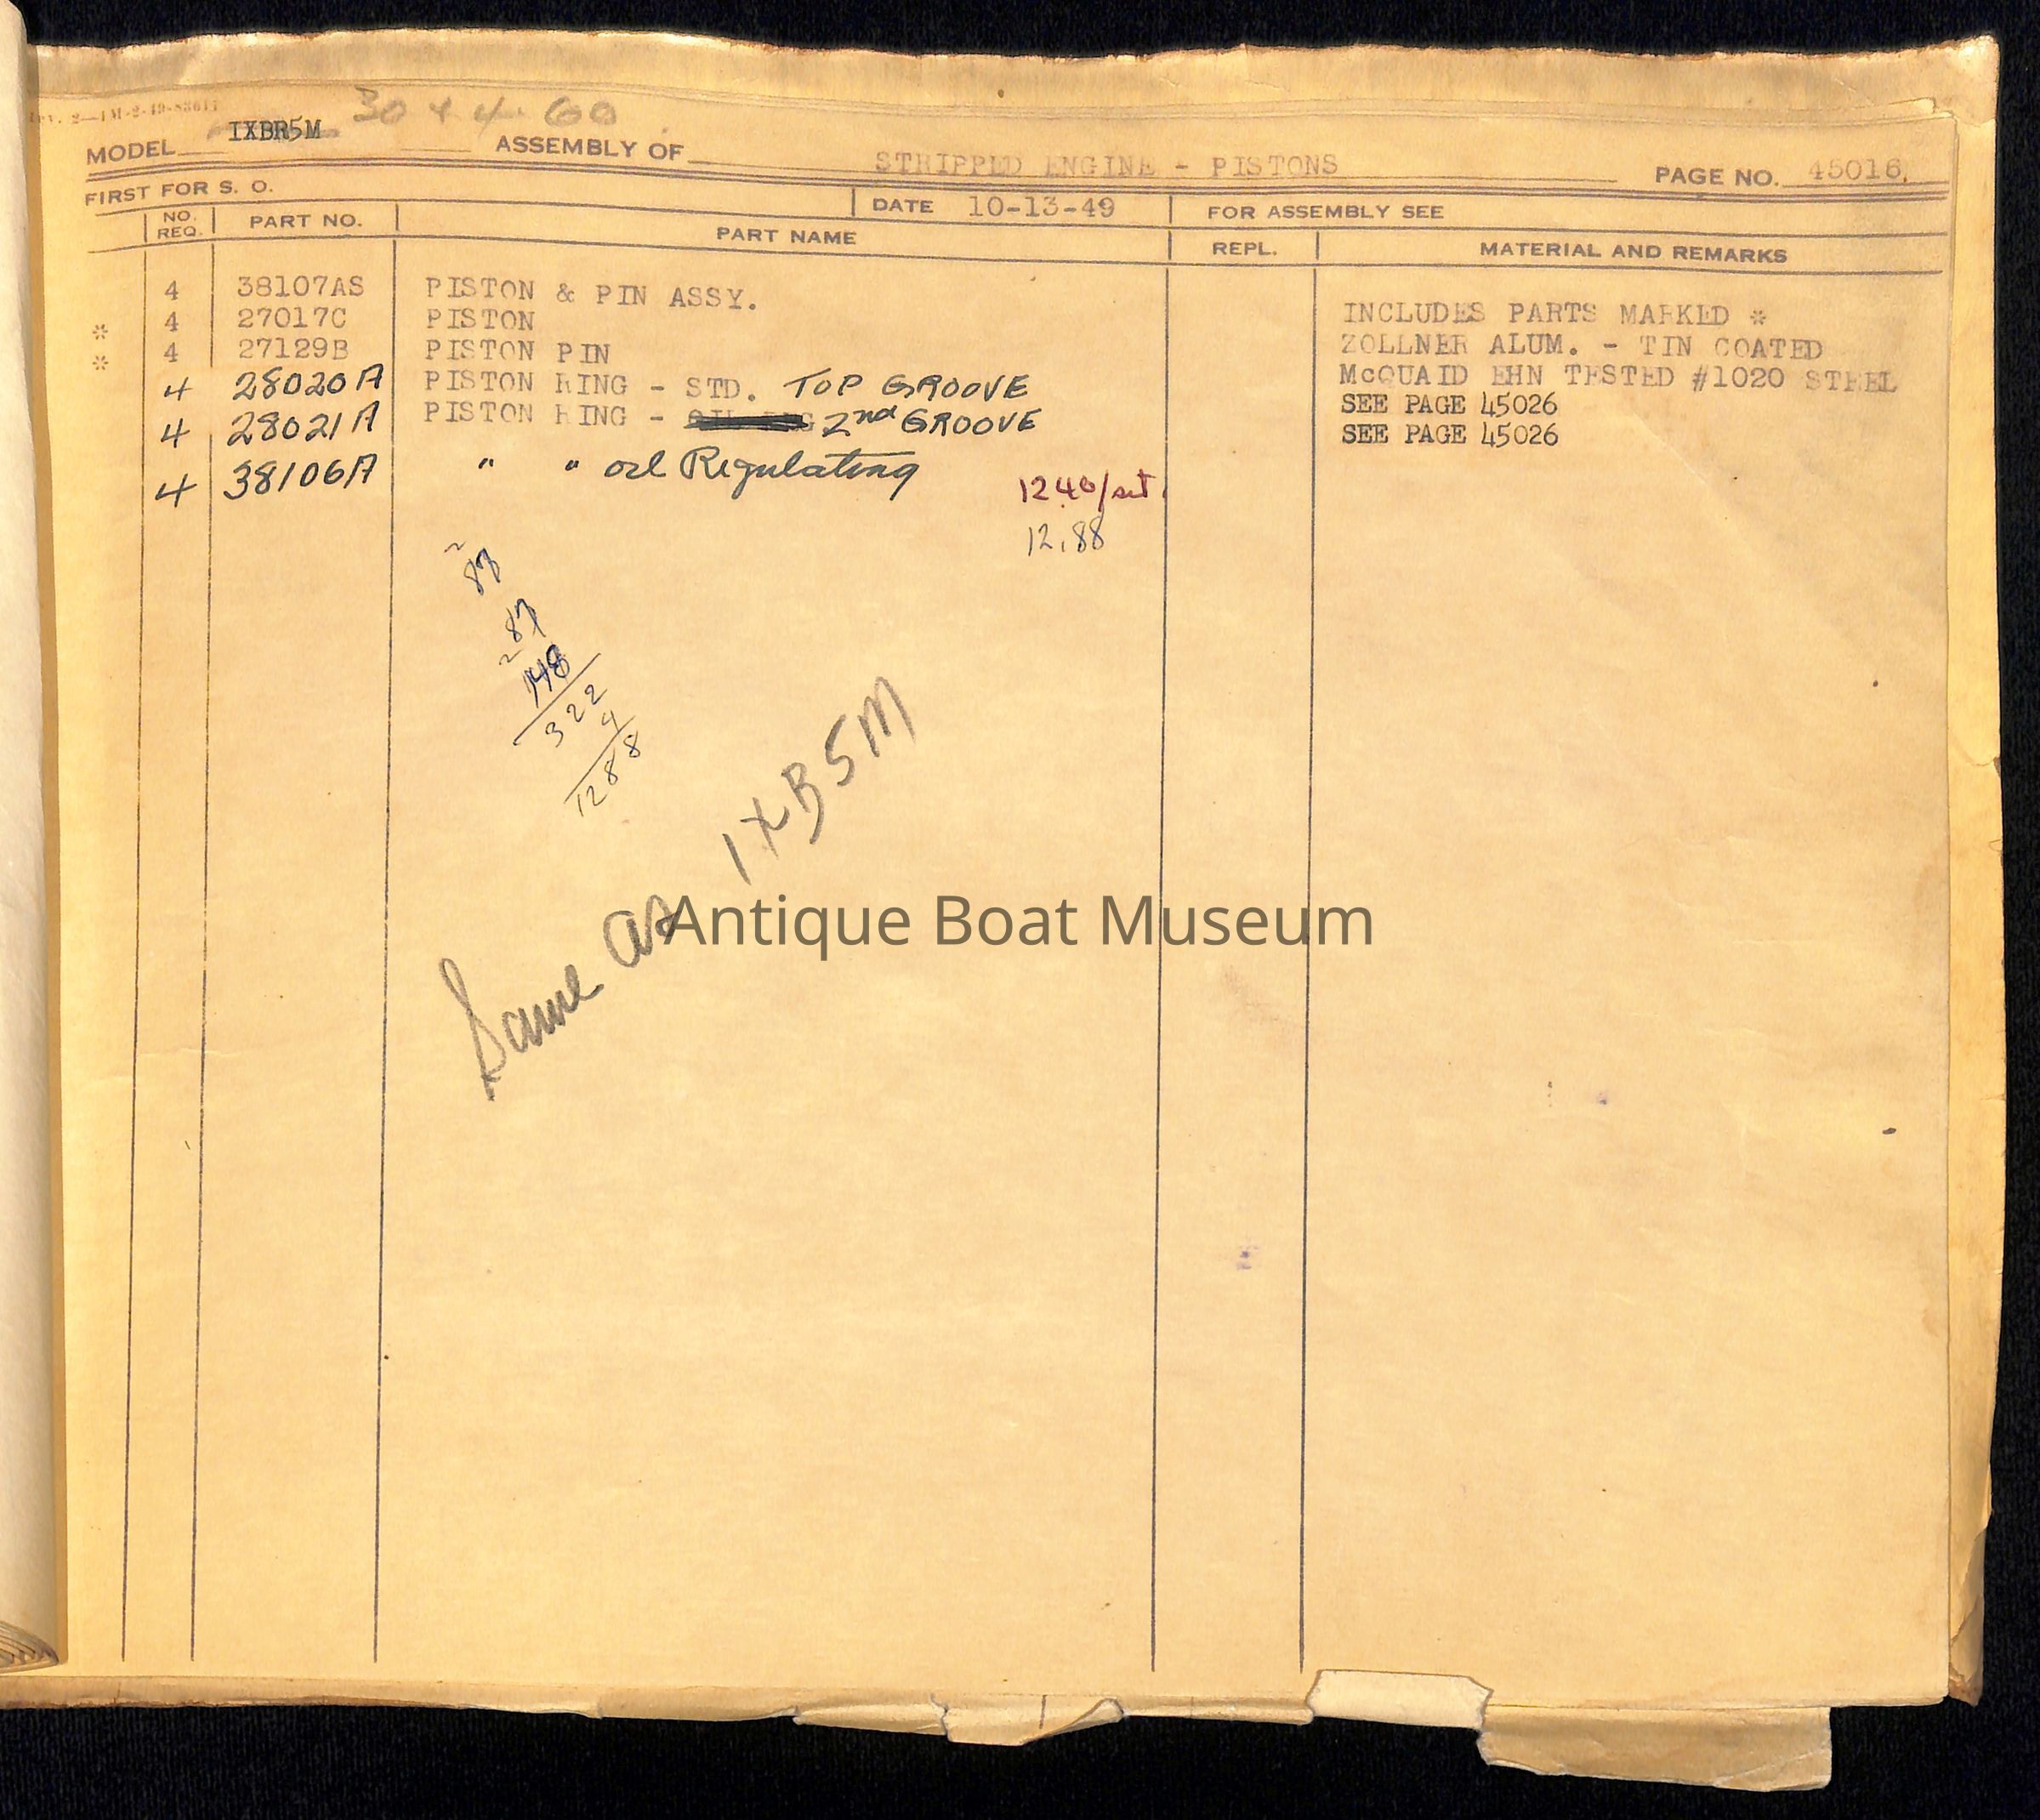 IXBR5M
MODEL ASSEMBLY OF STRIPPED ENGINE - PISTONS PAGE NO. 45016.
FIRST FOR S. O. DATE 10-13-49 FOR ASSEMBLY SEE
NO. REQ. PART NO. PART NAME REPL. MATERIAL AND REMARKS
4 38107AS PISTON & PIN ASSY. INCLUDES PARTS MARKED *
* 4 27017C PISTON ZOLLNER ALUM. - TIN COATED
* 4 27129B PISTON PIN McQUAID EHN TESTED #1020 STEEL
4 28020A PISTON RING - STD. TOP GROOVE SEE PAGE 45026
4 28021A PISTON RING - 2nd GROOVE SEE PAGE 45026
4 38106A " " oil Regulating
12.40/set
12.88
87
87
148
322
4
1288
Same as 1XB5M
Antique Boat Museum